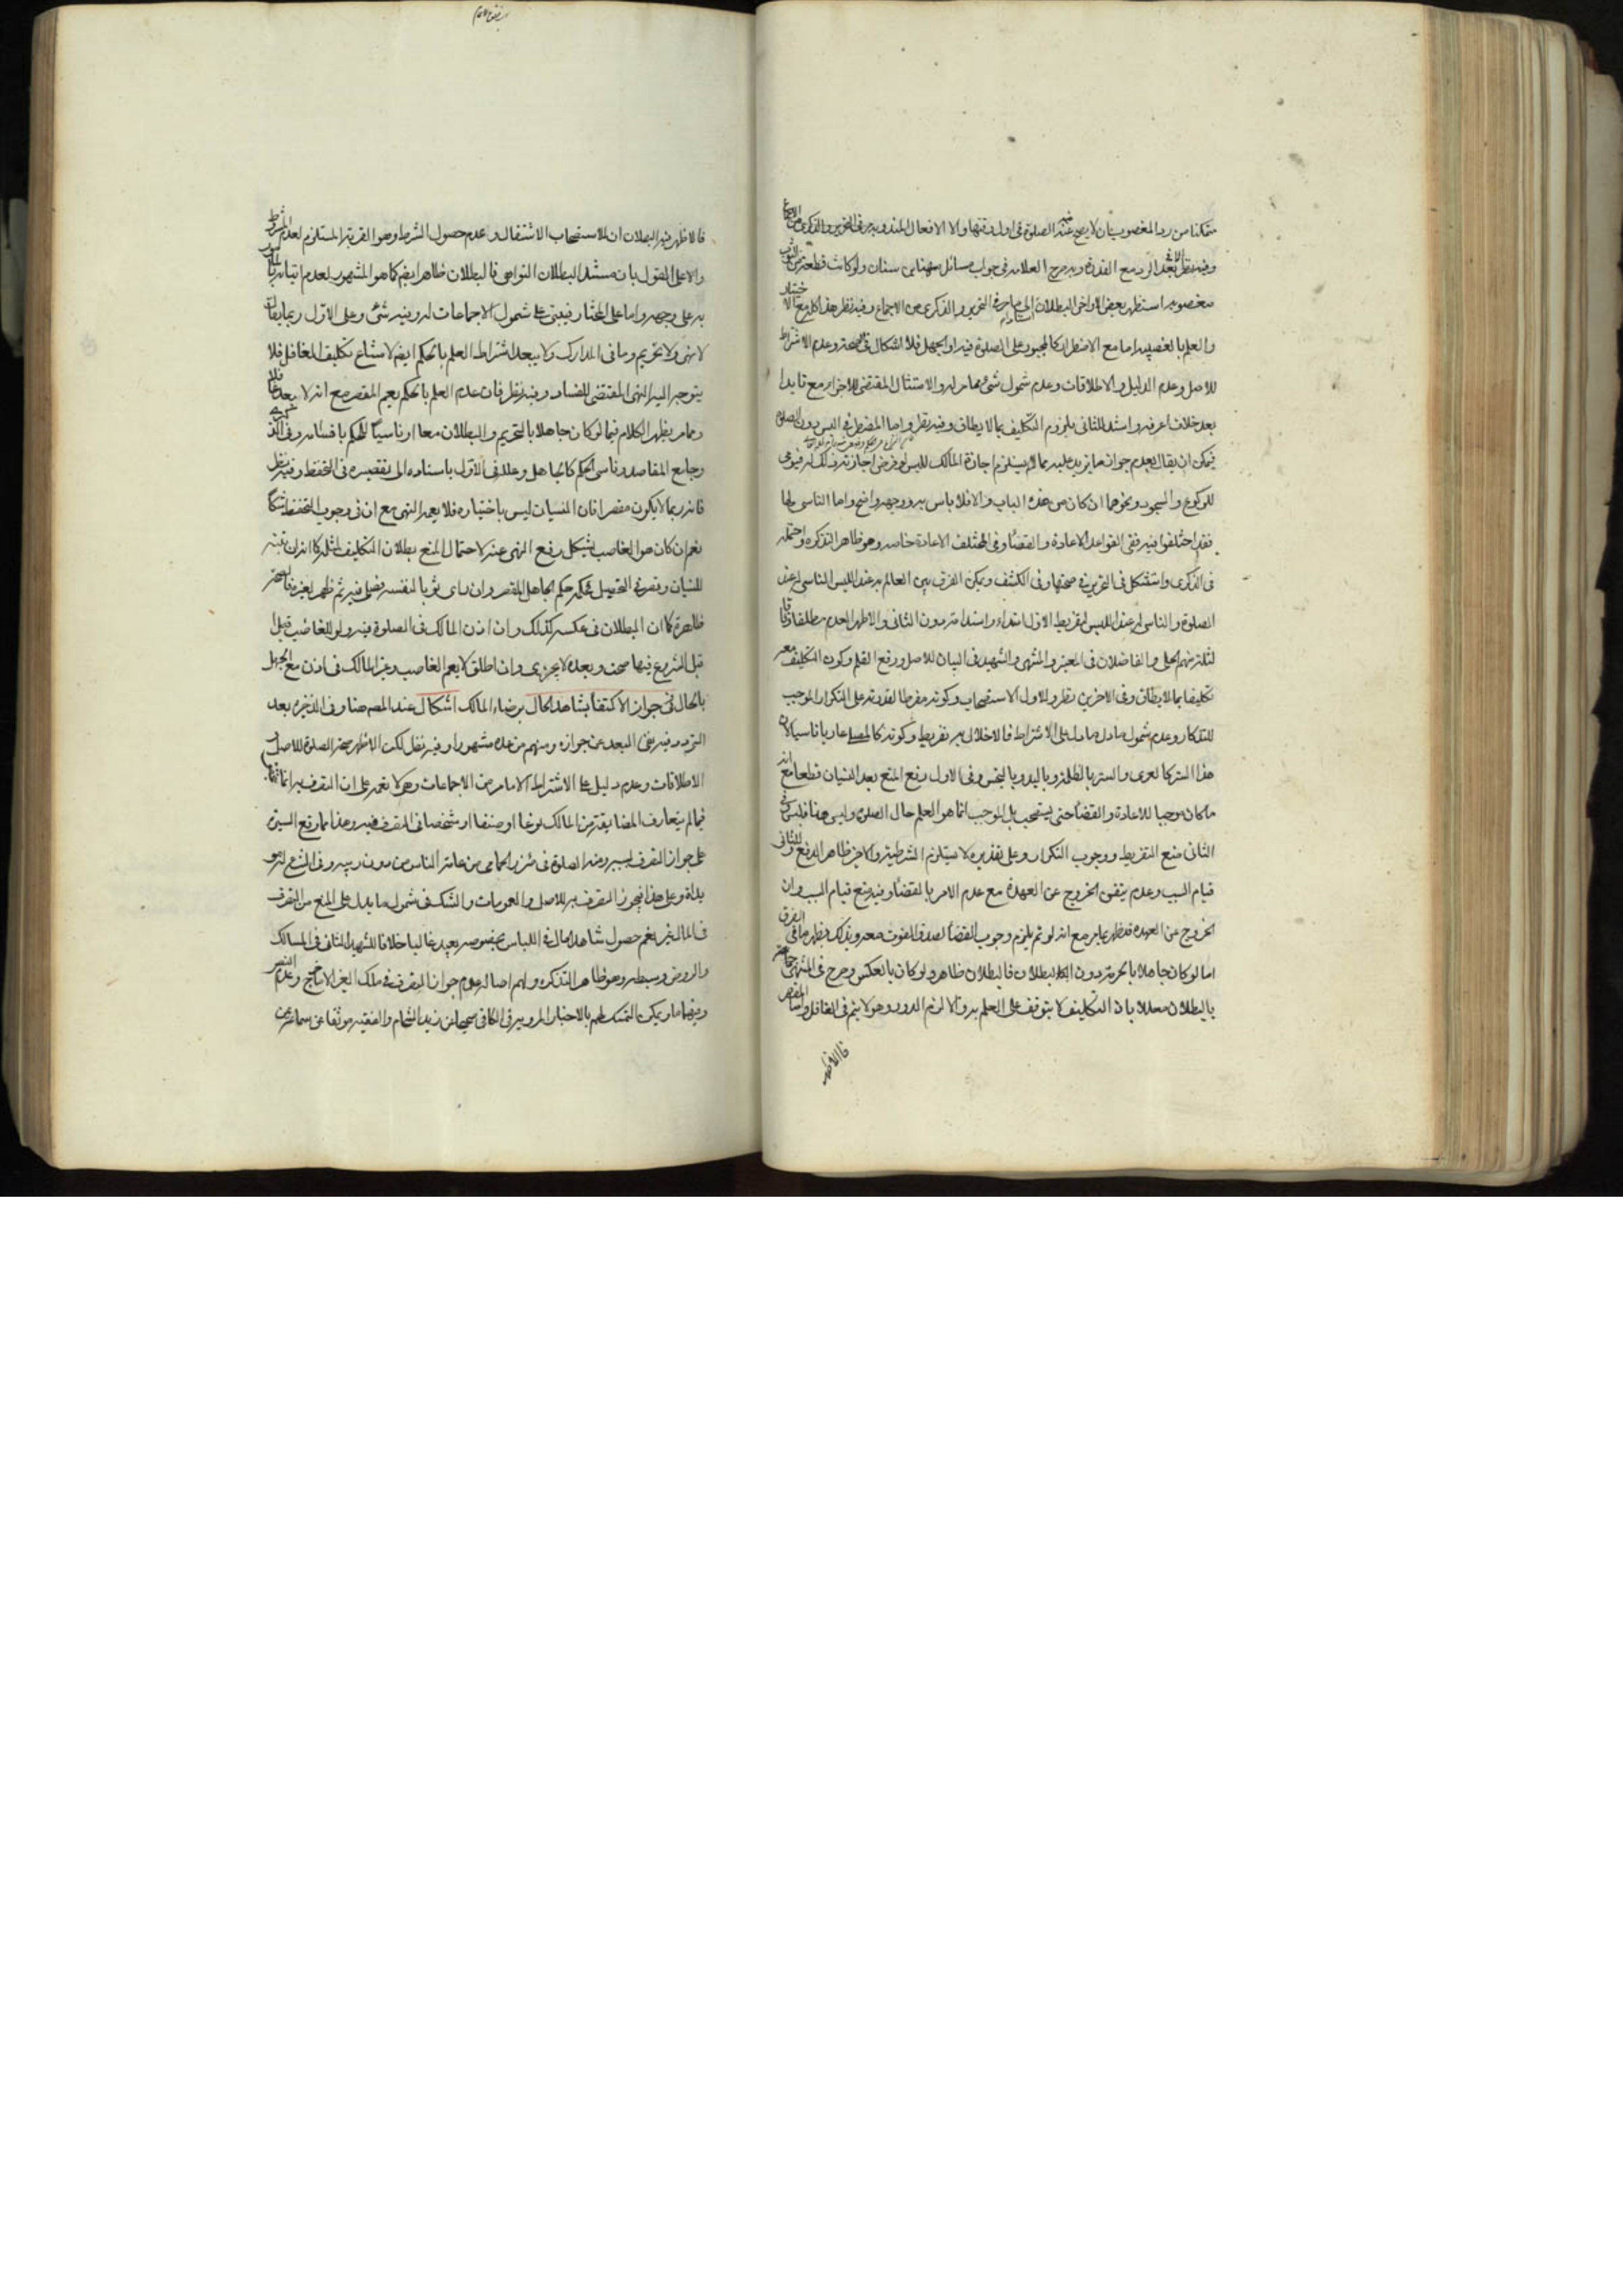 متمكنا من رد المغصوب بان لا يصح عنه الصلوة في اول وقتها ولا الافعال المندوبة في التحرير والذكرى من الاجماع
وفيه نظر بعد الرد مع القدرة وبه صرح العلامة في جواب مسائل مهنا بن سنان ولو كانت قطعة من الثوب
مغصوبة استظهر بعض الاواخر البطلان الى ما مر في التحرير والذكرى من الاجماع وفيه نظر هذا كله مع الاختيار
والعلم بالغصبية اما مع الاضطرار كالمجبور على الصلوة فيه او الجهل فلا اشكال في الصحة وعدم الاشتراط
للاصل وعدم الدليل والاطلاقات وعدم شمول شئ مما مر له والامتثال المقتضي للاجزاء مع تايدا
بعد خلاف اعرفه واستدل للثاني بلزوم التكليف بما لا يطاق وفيه نظر واما المضطر في اللبس دون الصلوة
فيمكن ان يقال بعدم جواز ما يزيد عليه مما لم يستلزم اجازة المالك للبس لو فرض اجازته ذلك له فيومى
للركوع والسجود ونحوهما ان كان من هذه الباب والا فلا باس به ووجهه واضح واما الناسي لها
فقد اختلفوا فيه ففي القواعد الاعادة والقضاء وفي المختلف الاعادة خاصة وهو ظاهر التذكرة واحتمله
في الذكرى واستشكل في التحرير في صحتها وفي الكشف ويمكن الفرق بين العالم به عند اللبس الناسي له عند
الصلوة والناسي له عند اللبس لتفريط الاول ابتداء واستدامة دون الثاني والاظهر العدم مطلقا وفاقا
لثلثة منهم الحلي والفاضلان في المعتبر والمنتهى والشهيد في البيان للاصل ورفع القلم وكون التكليف معه
تكليفا بما لا يطاق وفي الاخرين نظر وللاول الاستصحاب وكونه مفرطا لقدرته على التكرار الموجب
للتذكار وعدم شمول ما دل على الاشتراط فالاخلال به تفريط وكونه كالمصلي عاريا ناسيا لان
هذا الستر كالعرى والستر بالظلمة وباليد وبالنجس وفي الاول رفع المنع بعد النسيان قطعا مع انه
ما كان موجبا للاعادة والقضاء حتى يستصحب بل الموجب انما هو العلم حال الصلوة وليس هنا فليس في
الثاني منع التفريط ووجوب التكرار وعلى تقديره لا يستلزم الشرطية والاخر ظاهر الدفع وللثاني
قيام السبب وعدم تيقن الخروج عن العهدة مع عدم الامر بالقضاء وفيه منع قيام السبب وان
الخروج عن العهدة قد ظهر بما مر مع انه لو تم يلزم وجوب القضاء لصدق الفوت معه وبذلك يظهر ما في الفرق
اما لو كان جاهلا بالحرمة دون البطلان فالبطلان ظاهر ولو كان بالعكس وصرح في المنتهى جماعة
بالبطلان معللا بان التكليف لا يتوقف على العلم به والا لزم الدور وهو لا يتم في الغافل واما المقصر
فالاظهر
فالاظهر فيه البطلان ان للاستصحاب الاشتغال وعدم حصول الشرط وهو القربة المستلزم لعدم المشروط
والا على القول بان مستند البطلان النواهي فالبطلان ظاهر ايضا كما هو المشهور لعدم اتيانه بالمأمور
به على وجهه واما على المختار فيبتني على شمول الاجماعات له وفيه شئ وعلى الاول ربما يقال
لا نهى ولا تحريم وما في المدارك ولا يبعد اشتراط العلم بالحكم ايضا لامتناع تكليف الغافل فلا
يتوجه اليه النهى المقتضي للفساد وفيه نظر فان عدم العلم بالحكم يعم المقصر مع انه لا بعد
ومما مر يظهر الكلام فيما لو كان جاهلا بالتحريم والبطلان معا او ناسيا للحكم باقسامه وفي
وجامع المقاصد وناسي الحكم كالجاهل وعلله في الاول باستناده الى تقصيره في التحفظ وفيه نظر
فانه ربما لا يكون مقصرا فان النسيان ليس باختياره فلا يعمه النهى مع ان في وجوب التحفظ شكا
نعم ان كان هو الغاصب يشكل رفع النهى عنه لاحتمال المنع بطلان التكليف لمثله كما انه ان تنبه
للنسيان وقصر في التحصيل فحكمه حكم الجاهل المقصر وان راى ثوبا لنفسه فصلى فيه ثم ظهر لغيره فالصحة
ظاهرة كما ان البطلان في عكسه كذلك وان اذن المالك في الصلوة فيه ولو للغاصب قبل
قبل الشروع فيها صحت وبعده لا يجزي وان اطلق لا يعم الغاصب وغير المالك في اذن مع الجهل
بالحال في جواز الاكتفاء بشاهد الحال برضاء المالك اشكال عند المص هنا وفي الذخيرة بعد
التردد فيه نفى البعد عن جوازه ومنهم من عده مشهورا وفيه نظر لكن الاظهر صحة الصلوة للاصل
الاطلاقات وعدم دليل على الاشتراط الا ما مر من الاجماعات وهو لا تعم على ان التصرف به انما
فيما لم يتعارف المضايقة من المالك نوعا او صنفا او شخصا في التصرف فيه وهذا مما وقع السيرة
على جواز التصرف ليسير ومنه الصلوة في مئزر الحمامي من عامة الناس من دون ريبة وفي المنع
بداهة وعلى هذا فيجوز التصرف به للاصل والعمومات والشك في شمول ما يدل على المنع من التصرف
في المال لغيره نعم حصول شاهد الحال في اللباس بخصوصه بعيد غالبا خلافا للشهيد الثاني في المسالك
والروض وسبطه وهو ظاهر التذكرة ولهم اصالة عدم جواز التصرف في ملك الغير الا ما خرج وعدم النص
وفيهما ما مر ويمكن التمسك لهم بالاخبار المروية في الكافي صحيحا عن زيد الشحام والفقيه موثقا عن سماعة عن